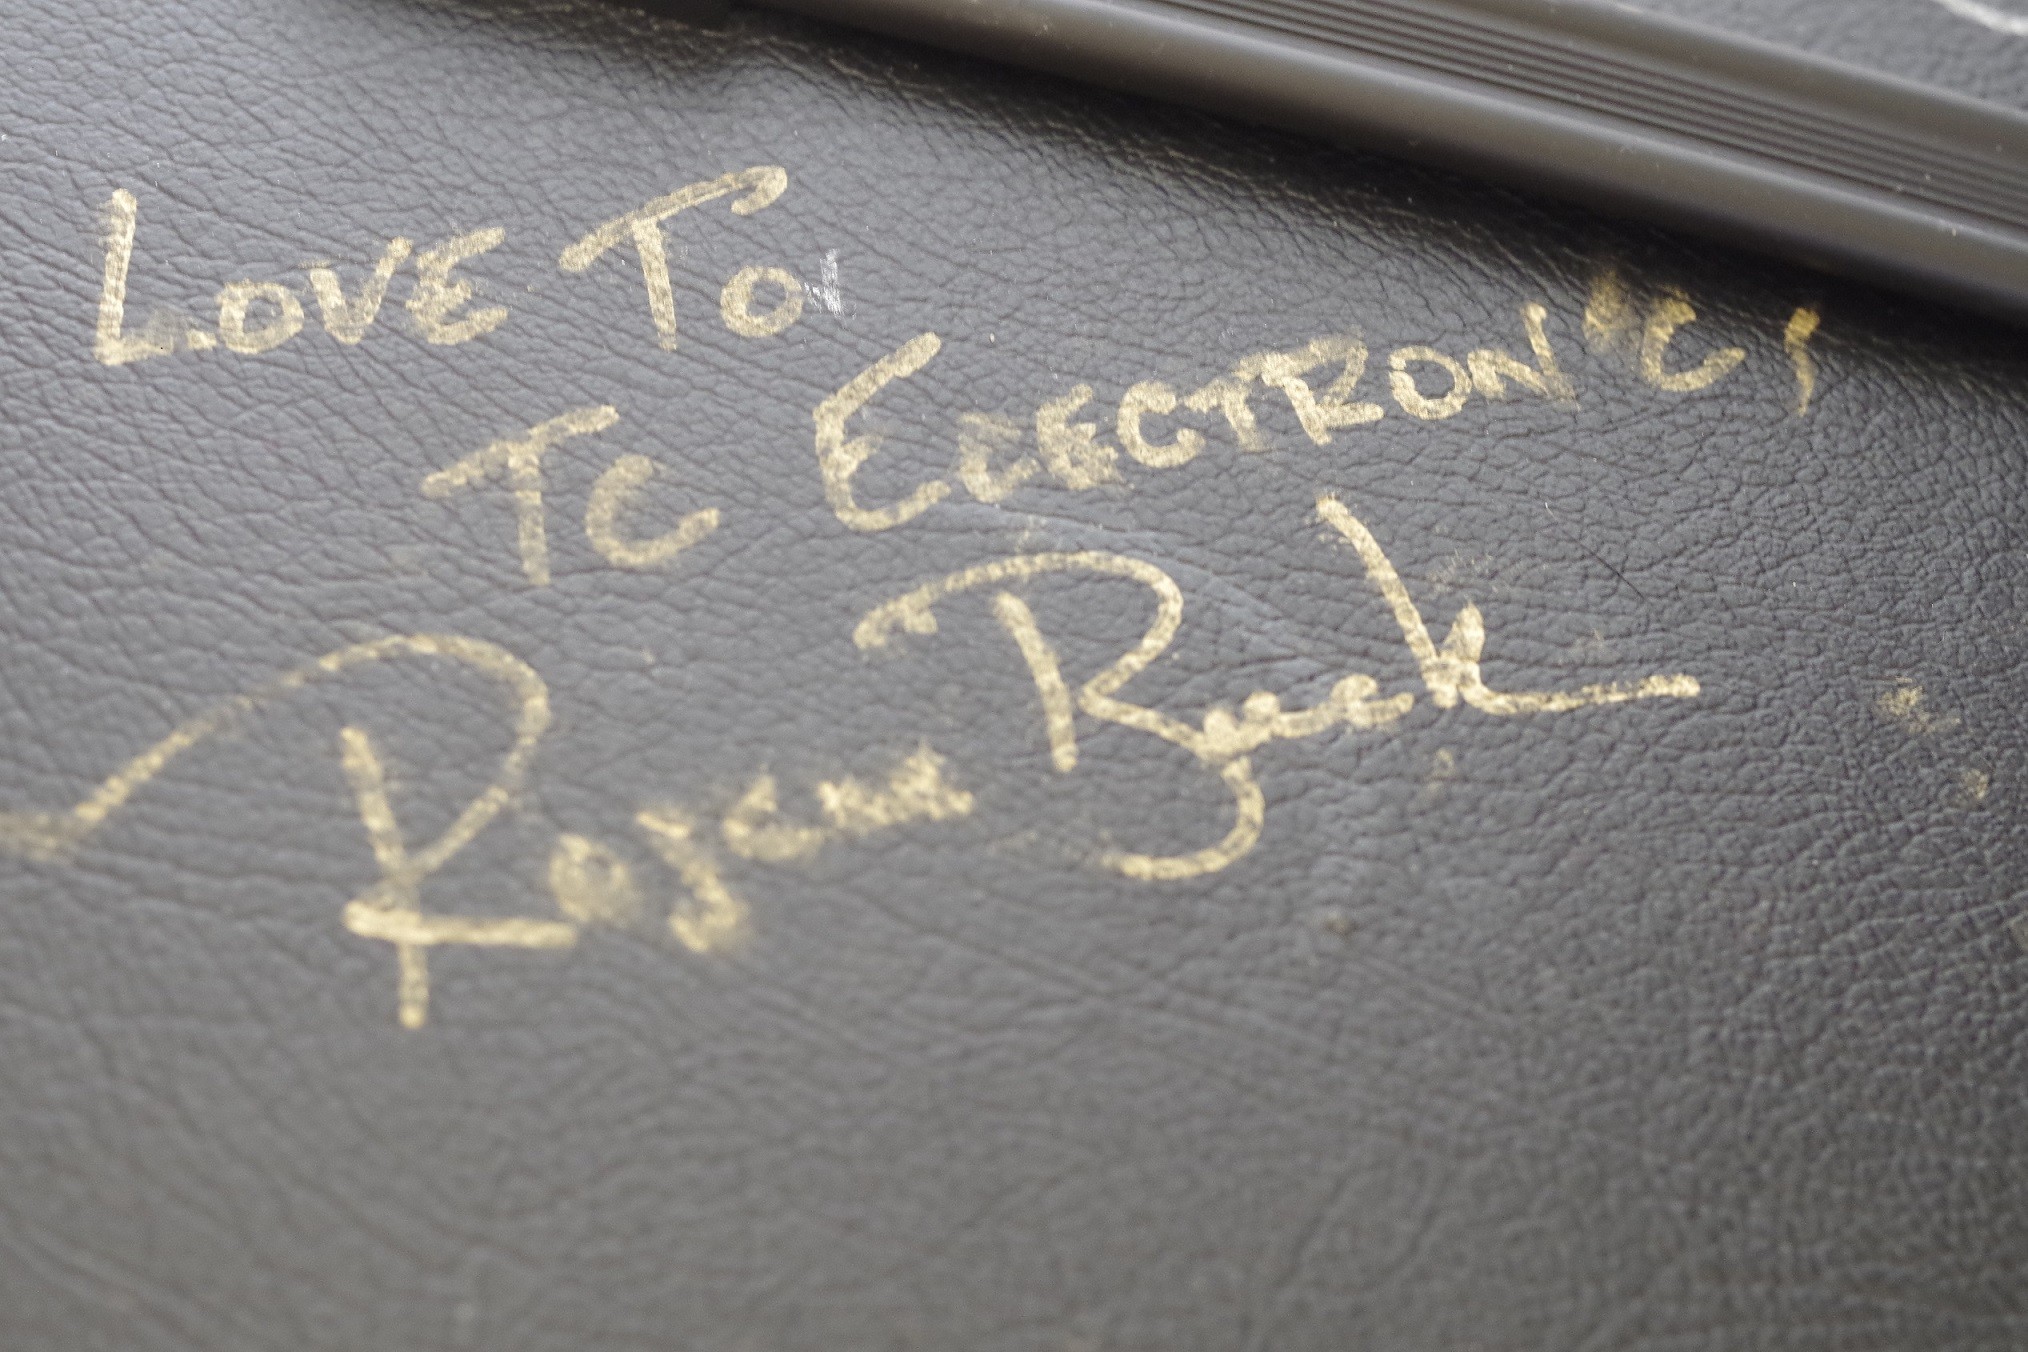 LOVE TO
TC ELECTRONIC,
Rogen Buck